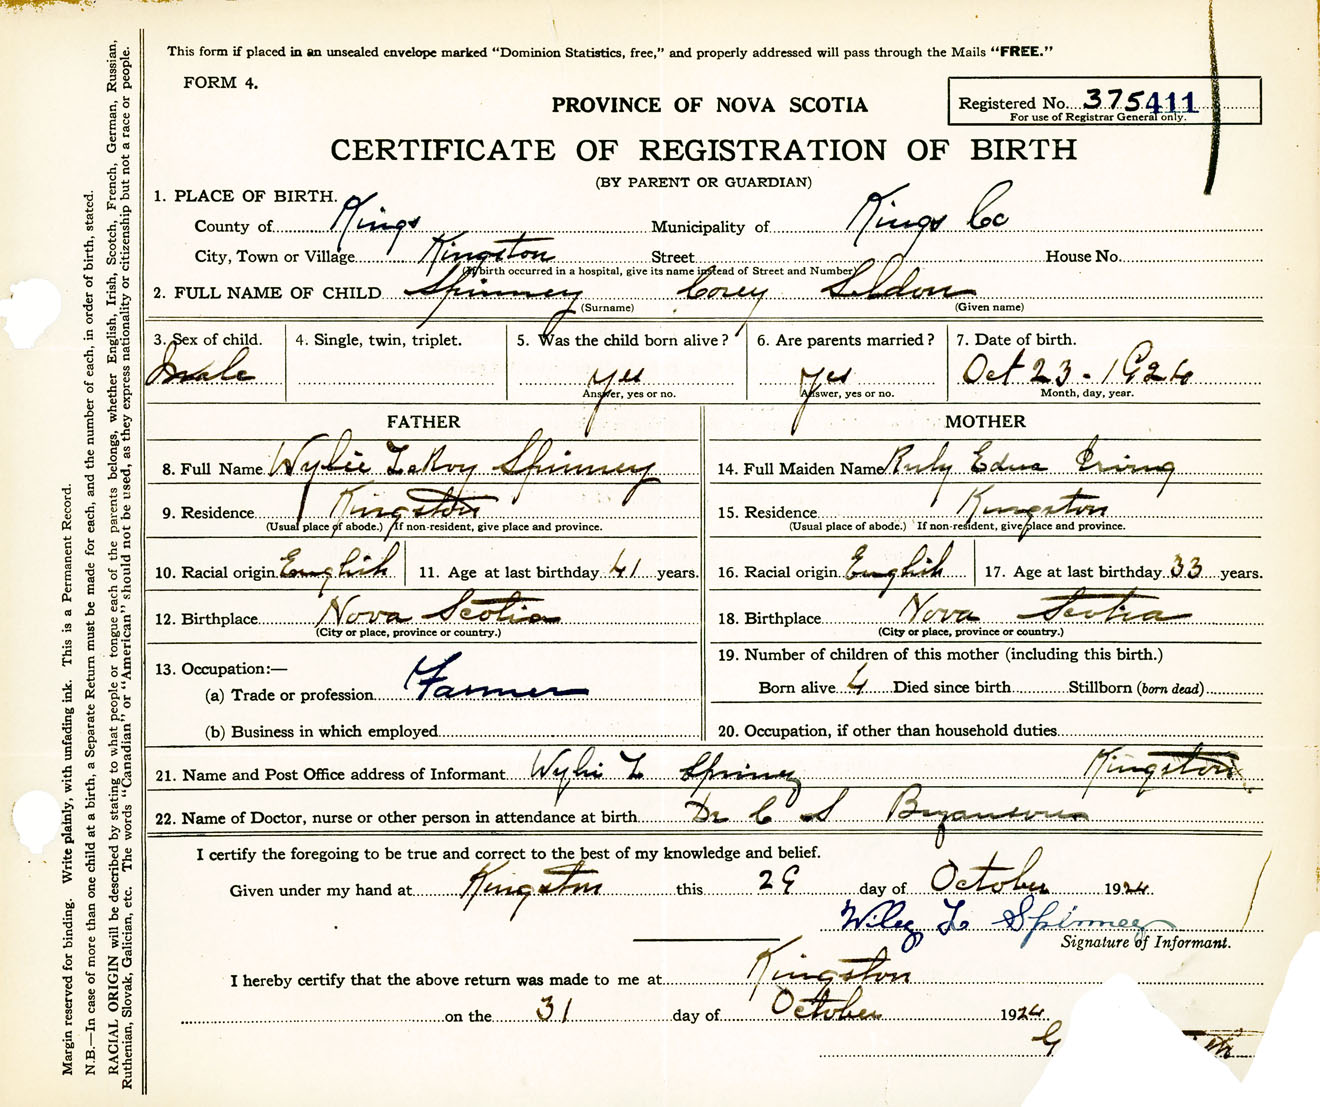 This form if placed in an unsealed envelope marked "Dominion Statistics, free," and properly addressed will pass through the Mails "FREE."
FORM 4.
PROVINCE OF NOVA SCOTIA
Registered No. 375411
For use of Registrar General only.
CERTIFICATE OF REGISTRATION OF BIRTH
(BY PARENT OR GUARDIAN)
1. PLACE OF BIRTH.
County of Kings Municipality of Kings Co
City, Town or Village Kingston Street House No.
(If birth occurred in a hospital, give its name instead of Street and Number)
2. FULL NAME OF CHILD Spinney Corey Seldon
(Surname) (Given name)
3. Sex of child. 4. Single, twin, triplet. 5. Was the child born alive? 6. Are parents married? 7. Date of birth.
Male yes yes Oct 23 - 1924
Answer, yes or no. Answer, yes or no. Month, day, year.
FATHER MOTHER
8. Full Name Wylie LeRoy Spinney 14. Full Maiden Name Ruby Edna Irving
9. Residence Kingston 15. Residence Kingston
(Usual place of abode.) If non-resident, give place and province. (Usual place of abode.) If non-resident, give place and province.
10. Racial origin English 11. Age at last birthday 41 years. 16. Racial origin English 17. Age at last birthday 33 years.
12. Birthplace Nova Scotia 18. Birthplace Nova Scotia
(City or place, province or country.) (City or place, province or country.)
13. Occupation:— 19. Number of children of this mother (including this birth.)
(a) Trade or profession Farmer Born alive 4 Died since birth Stillborn (born dead)
(b) Business in which employed 20. Occupation, if other than household duties
21. Name and Post Office address of Informant Wylie L Spinney Kingston
22. Name of Doctor, nurse or other person in attendance at birth Dr C S
I certify the foregoing to be true and correct to the best of my knowledge and belief.
Given under my hand at Kingston this 29 day of October 1924
Wiley L Spinney
Signature of Informant.
I hereby certify that the above return was made to me at Kingston
on the 31 day of October 1924
G
Margin reserved for binding. Write plainly, with unfading ink. This is a Permanent Record.
N.B.—In case of more than one child at a birth, a Separate Return must be made for each, and the number of each, in order of birth, stated.
RACIAL ORIGIN will be described by stating to what people or tongue each of the parents belongs, whether English, Irish, Scotch, French, German, Russian,
Ruthenian, Slovak, Galician, etc. The words "Canadian" or "American" should not be used, as they express nationality or citizenship but not a race or people.